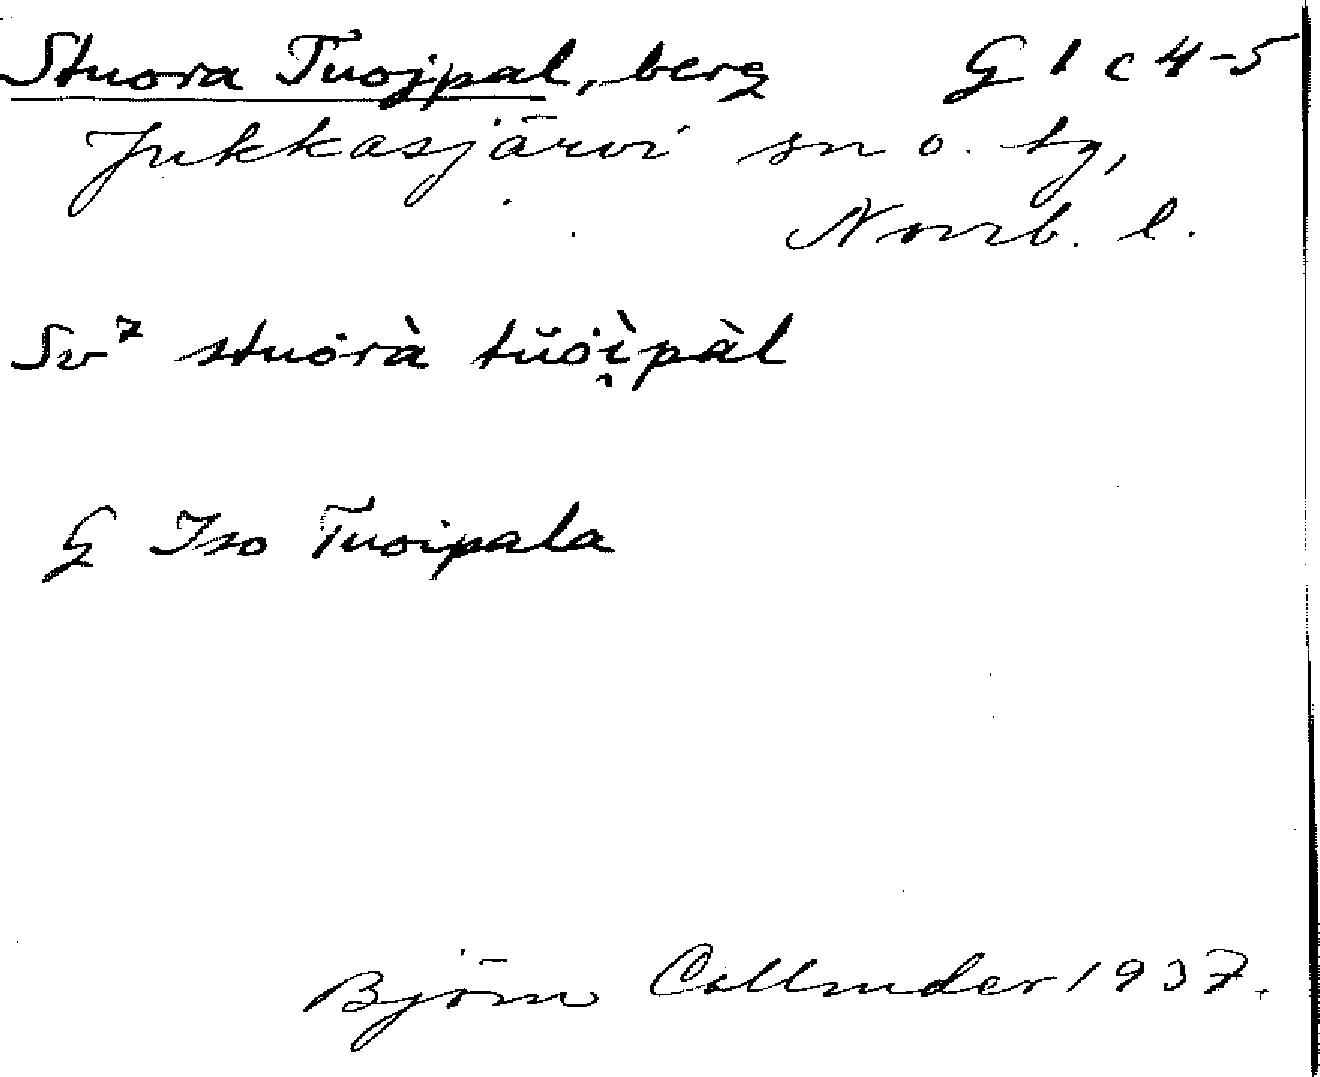 Stuora Tuojpal, berg G 1 c 4-5
Jukkasjärvi sn o. tg,
Norrb. l.
Sv⁷ stuorà tŭȯì̯pàl
G Iso Tuoipala
Björn Collinder 1937.